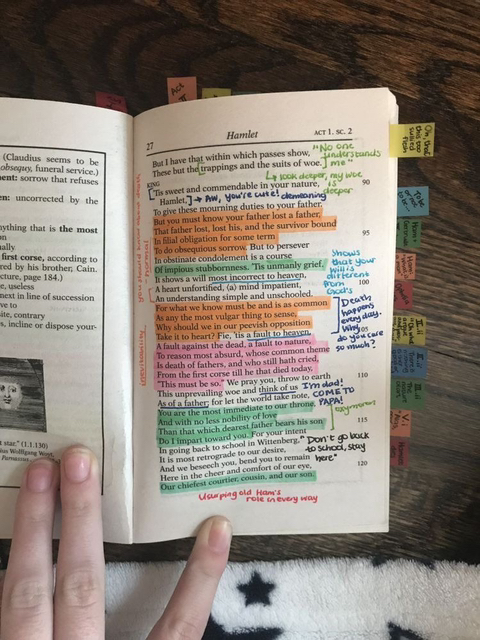 (Claudius seems to be
obsequy, funeral service.)
ment: sorrow that refuses
uncorrected by the
anything that is the most
first corse, according to
red by his brother, Cain.
cture, page 184.)
e, useless
next in line of succession
site, contrary
s, incline or dispose your-
star." (1.1.130)
27
Hamlet
ACT 1. SC. 2
But I have that within which passes show,
These but the trappings and the suits of woe.
"No one
understands
me"
↳ took deeper, my woe
is
deeper
KING
'Tis sweet and commendable in your nature,
90
Hamlet,
→ Aw, you're cute! demeaning
To give these mourning duties to your father.
But you must know your father lost a father,
That father lost, lost his, and the survivor bound
In filial obligation for some term
To do obsequious sorrow. But to persever
In obstinate condolement is a course
Of impious stubbornness. 'Tis unmanly grief.
It shows a will most incorrect to heaven,
A heart unfortified, (a) mind impatient,
100
An understanding simple and unschooled.
Shows
that your
will is
different
from
God's
For what we know must be and is as common
As any the most vulgar thing to sense,
Why should we in our peevish opposition
Take it to heart? Fie, 'tis a fault to heaven,
105
A fault against the dead, a fault to nature,
To reason most absurd, whose common theme
Is death of fathers, and who still hath cried,
From the first corse till he that died today,
Death
happens
every
day.
Why
do you care
so much?
"This must be so." We pray you, throw to earth
110
This unprevailing woe and think of us
As of a father; for let the world take note,
I'm dad!
COME TO
PAPA!
You are the most immediate to our throne,
And with no less nobility of love
Than that which dearest father bears his son
115
Do I impart toward you. For your intent
In going back to school in Wittenberg,
It is most retrograde to our desire,
And we beseech you, bend you to remain
Here in the cheer and comfort of our eye,
120
Our chiefest courtier, cousin, and our son.
"Don't go back
to school, stay
here"
Usurping old Ham's
role in every way
Oh, that
this too
sullied
flesh